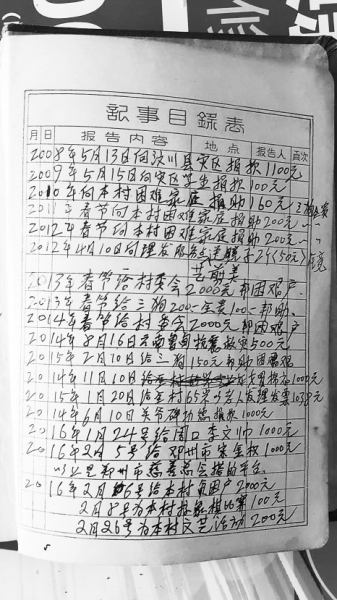 記事目錄表
月 日 報告內容 地點 報告人 頁次
2008年5月13日向汶川县灾区捐款1100元
2009年5月15日向灾区学生捐款100元
2010年向本村困难家庭捐助160元
2011年春节向本村困难家庭捐助200元
2012年春节向本村困难家庭捐助200元
2012年4月10日向理发服务
2013年春节给村委会2000元帮困难户
2013年春节给三狗200元 100元帮助
2014年春节给村委会2000元帮困难户
2014年8月16日云南鲁甸救灾500元
2015年2月10日给三狗150元帮助困难
2014年11月10日给 1000元
2015年1月20日给全村65岁以上老人理发票1038元
2014年6月10日关爷碑功德捐款1000元
2016年1月24号给周口李文帅1000元
2016年2月5号给邓州市宋金钦1000元
以上是邓州市慈善总会搭的平台
2016年2月6号给本村贫困户2000元
2月8号为本村 棋比赛100元
2月26号为本村文艺活动2000元